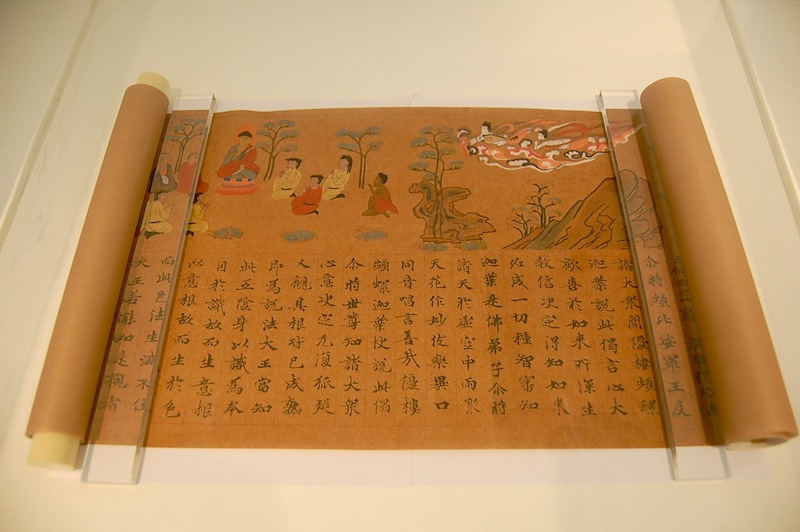 尒時頻毗娑羅王及
諸大衆聞優樓頻螺
迦葉說此偈言心大
歡喜於如來所深生
敬信決定得知如來
必成一切種智審知
迦葉是佛弟子尒時
諸天於虛空中雨衆
天花作妙伎樂異口
同音唱言善哉優樓
頻螺迦葉快說此偈
尒時世尊知諸大衆
心意決定无復狐疑
又觀其根皆已成熟
即為說法大王當知
此五陰身以識為本
因於識故而生意根
以意根故而生於色
而此色法生滅不住
大王若能如是觀者